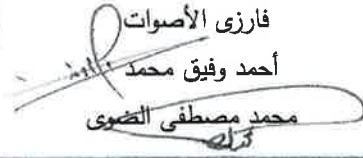 فارزى الأصوات
أحمد وفيق محمد
محمد مصطفى الضوى